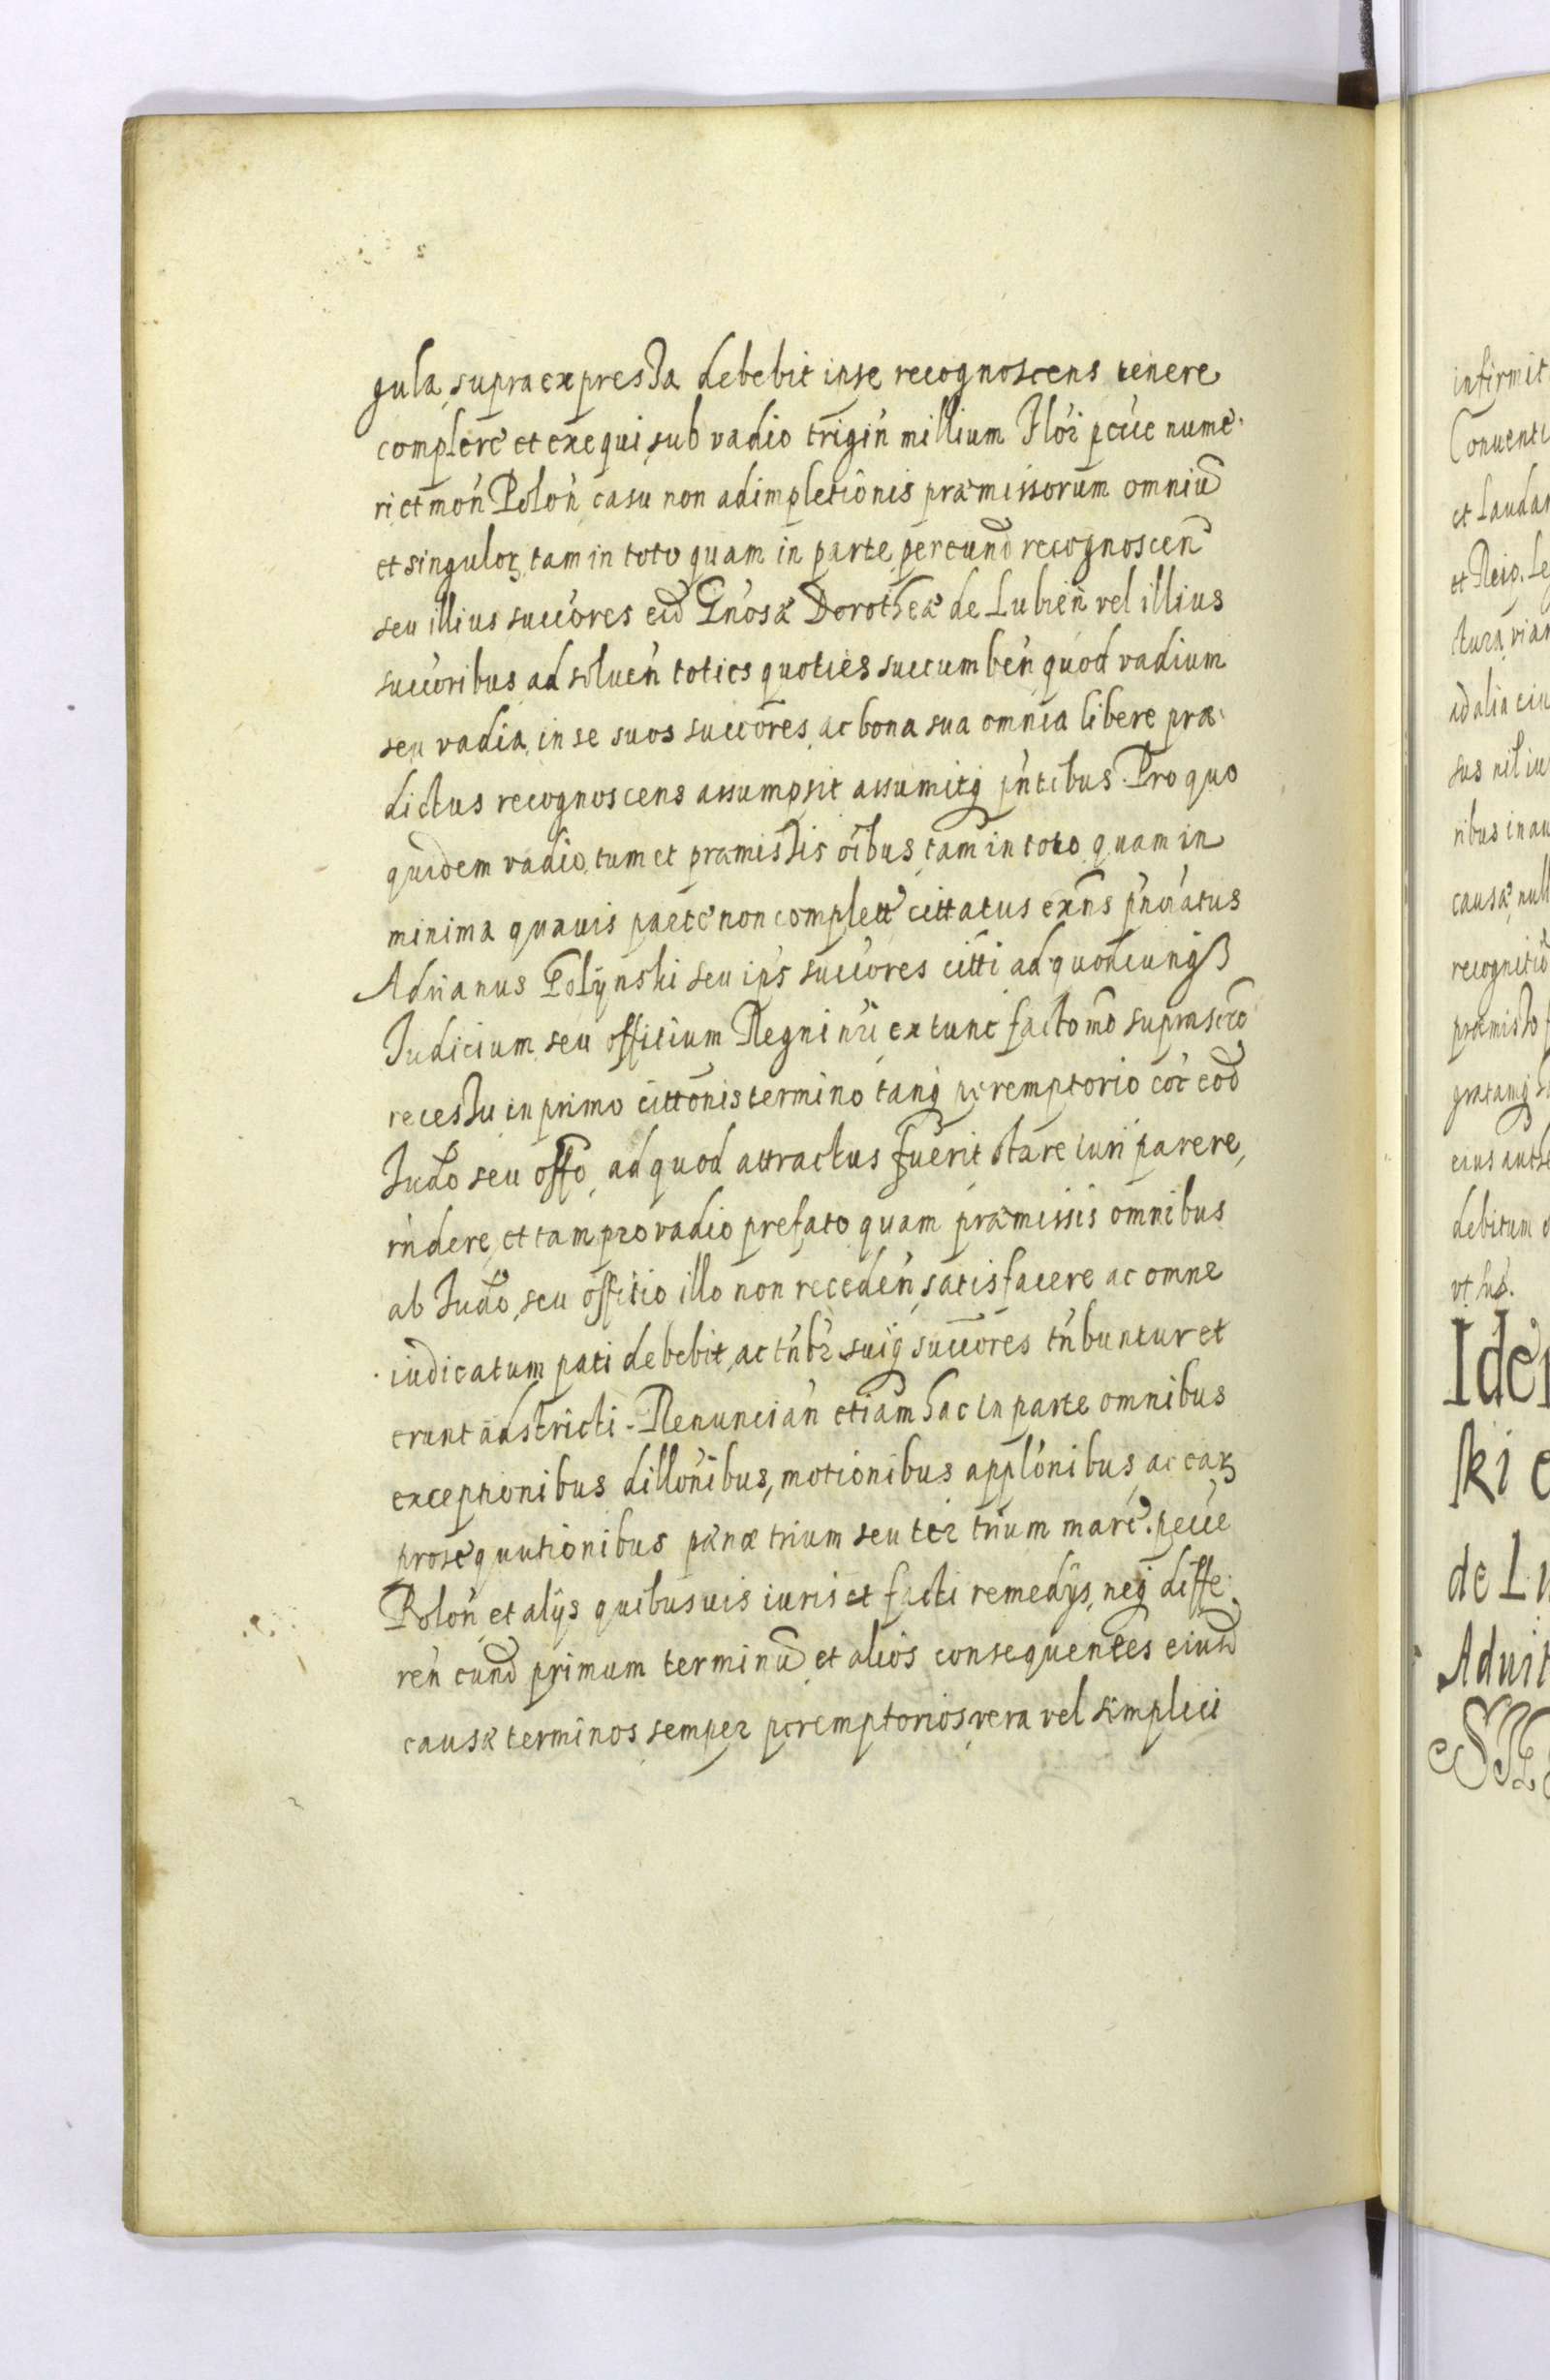 gula supra expressa debebit in se recognoscens tenere
complere et exequi sub vadio trigin̄ millium Flor̄ pecūe nume
ri et mon̄ Polon̄ casu non adimpletionis præmissorum omniū
et singuloꝝ tam in toto quam in parte per eund̄ recognoscen̄
seu illius succōres eid̄ Gn̄osæ Dorotheæ de Lubien̄ vel illius
succōribus ad soluen̄ toties quoties succumben̄ quod vadium
seu vadia in se suos succōres ac bona sua omnia libere præ
dictus recognoscens assumpsit assumitq̄ pn̄tibus. Pro quo
quidem vadio tum et præmissis oībus tam in toto quam in
minima quauis parte non complett̄ cittatus exn̄s
Adrianus Polynski seu ips̄ succōres citti ad quodcunq̄
Judicium seu offitium Regni nr̄i ex tunc facto mō suprascr̄o
recessu in primo cittōnis termino tanq̄ peremptorio cor̄ eod̄
Judo seu offo ad quod attractus fuerit stare iuri parere,
rn̄dere et tam pro vadio prefato quam præmissis omnibus
ab Judo seu offitio illo non receden̄ satisfacere ac omne
iudicatum pati debebit, ac tn̄br suiq̄ succōres tn̄buntur et
erunt adstricti. Renuncian̄ etiam hac in parte omnibus
exceptionibus dillōnibus, motionibus applōnibus, ac eaꝝ
prosequutionibus pænæ trium seu ter trium marc̄. pecūe
Polon̄ et alijs quibusuis iuris et facti remedijs, neq̄ diffe
ren̄ eund̄ primum terminū et alios consequentes eiusd̄
causæ terminos semper peremptorios vera vel simplici
infirmit
Conuenti
et Laudar
et Reip. Le
ctura viar
ad alia eiu
sus nil iu
ribus in au
causæ null
recognitiō
præmisso f
gratamq̄
eius auth
debitum
vt sup.
Ide
ki e
de Lu
Aduit